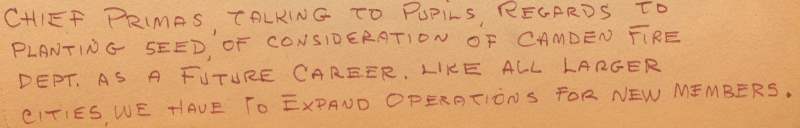 CHIEF PRIMAS, TALKING TO PUPILS, REGARDS TO
PLANTING SEED, OF CONSIDERATION OF CAMDEN FIRE
DEPT. AS A FUTURE CAREER. LIKE ALL LARGER
CITIES, WE HAVE TO EXPAND OPERATIONS FOR NEW MEMBERS.